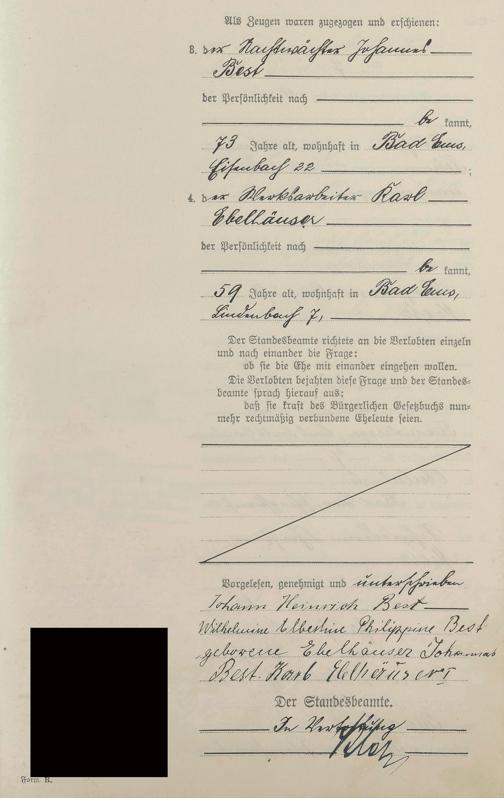 Als Zeugen waren zugezogen und erschienen:
3. der Nachtwächter Johannes
Best
der Persönlichkeit nach
be kannt,
73 Jahre alt, wohnhaft in Bad Ems,
Eisenbach 22 ;
4. der Werksarbeiter Karl
Ebelhäuser
der Persönlichkeit nach
be kannt,
59 Jahre alt, wohnhaft in Bad Ems,
Lindenbach 7,
Der Standesbeamte richtete an die Verlobten einzeln
und nach einander die Frage:
ob sie die Ehe mit einander eingehen wollen.
Die Verlobten bejahten diese Frage und der Standes-
beamte sprach hierauf aus;
daß sie kraft des Bürgerlichen Gesetzbuchs nun-
mehr rechtmäßig verbundene Eheleute seien.
Vorgelesen, genehmigt und unterschrieben
Johann Heinrich Best
Wilhelmine Albertine Philippine Best
geborene Ebelhäuser Johannes
Best. Karl Ebelhäuser I
Der Standesbeamte.
In Vertretung
Form. B.